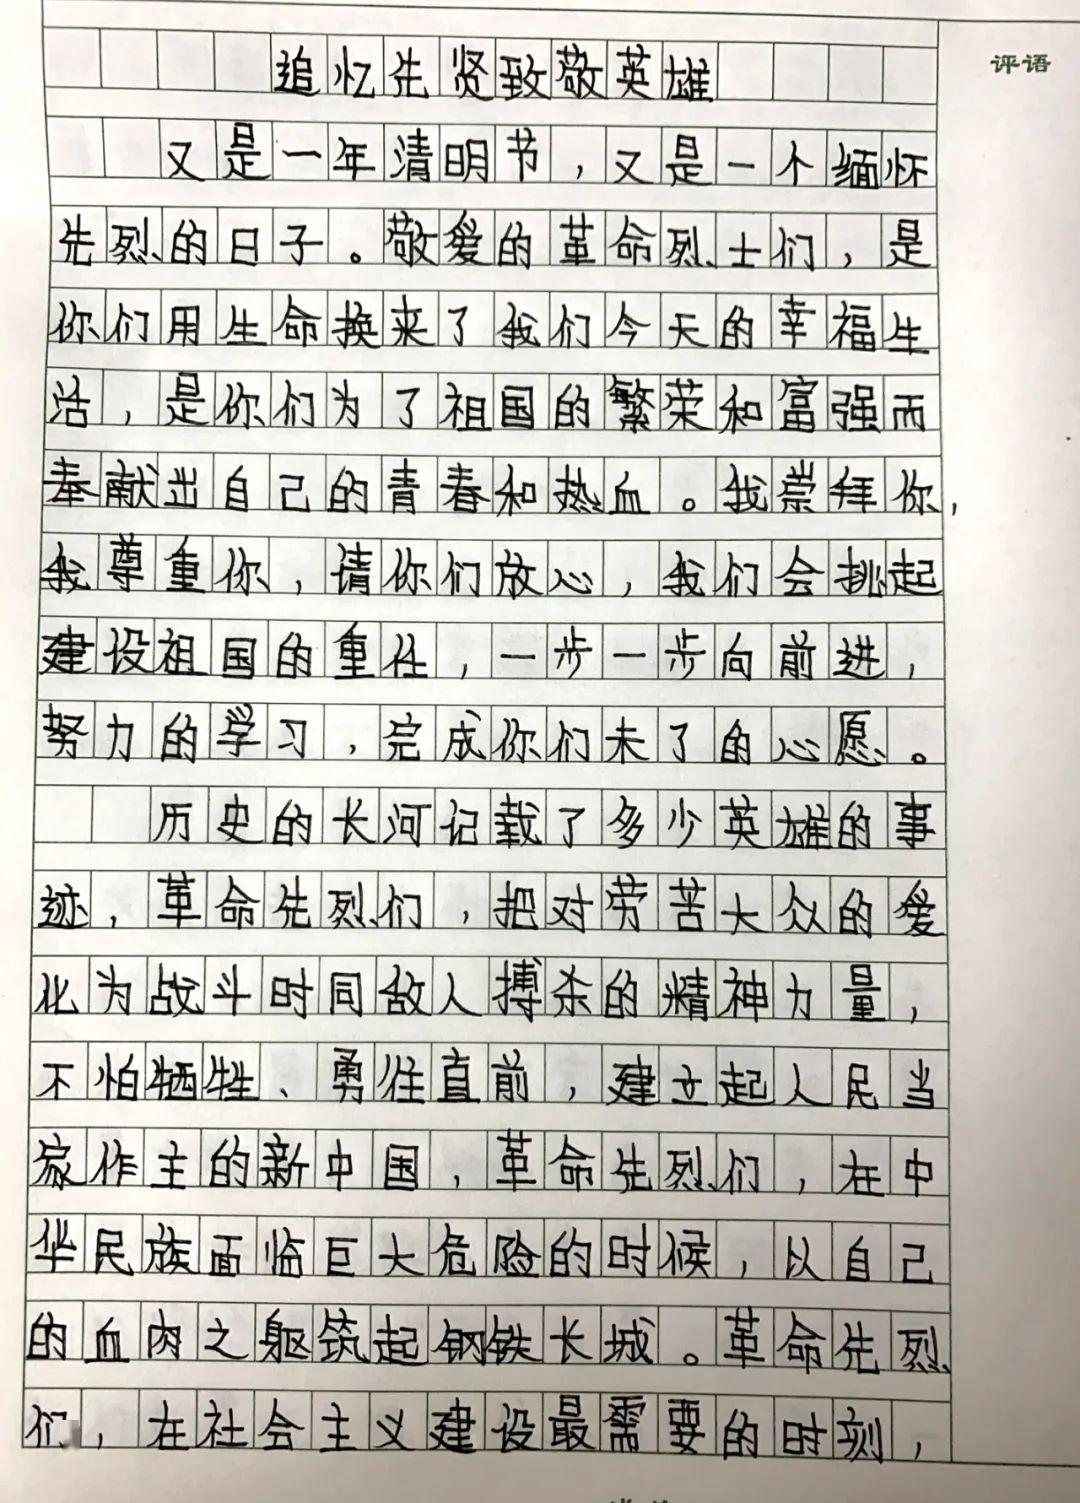 评语
追忆先贤致敬英雄
又是一年清明节，又是一个缅怀
先烈的日子。敬爱的革命烈士们，是
你们用生命换来了我们今天的幸福生
活，是你们为了祖国的繁荣和富强而
奉献出自己的青春和热血。我崇拜你，
我尊重你，请你们放心，我们会挑起
建设祖国的重任，一步一步向前进，
努力的学习，完成你们未了的心愿。
历史的长河记载了多少英雄的事
迹，革命先烈们，把对劳苦大众的爱
化为战斗时同敌人搏杀的精神力量，
不怕牺牲、勇往直前，建立起人民当
家作主的新中国，革命先烈们，在中
华民族面临巨大危险的时候，以自己
的血肉之躯筑起钢铁长城。革命先烈
们，在社会主义建设最需要的时刻，